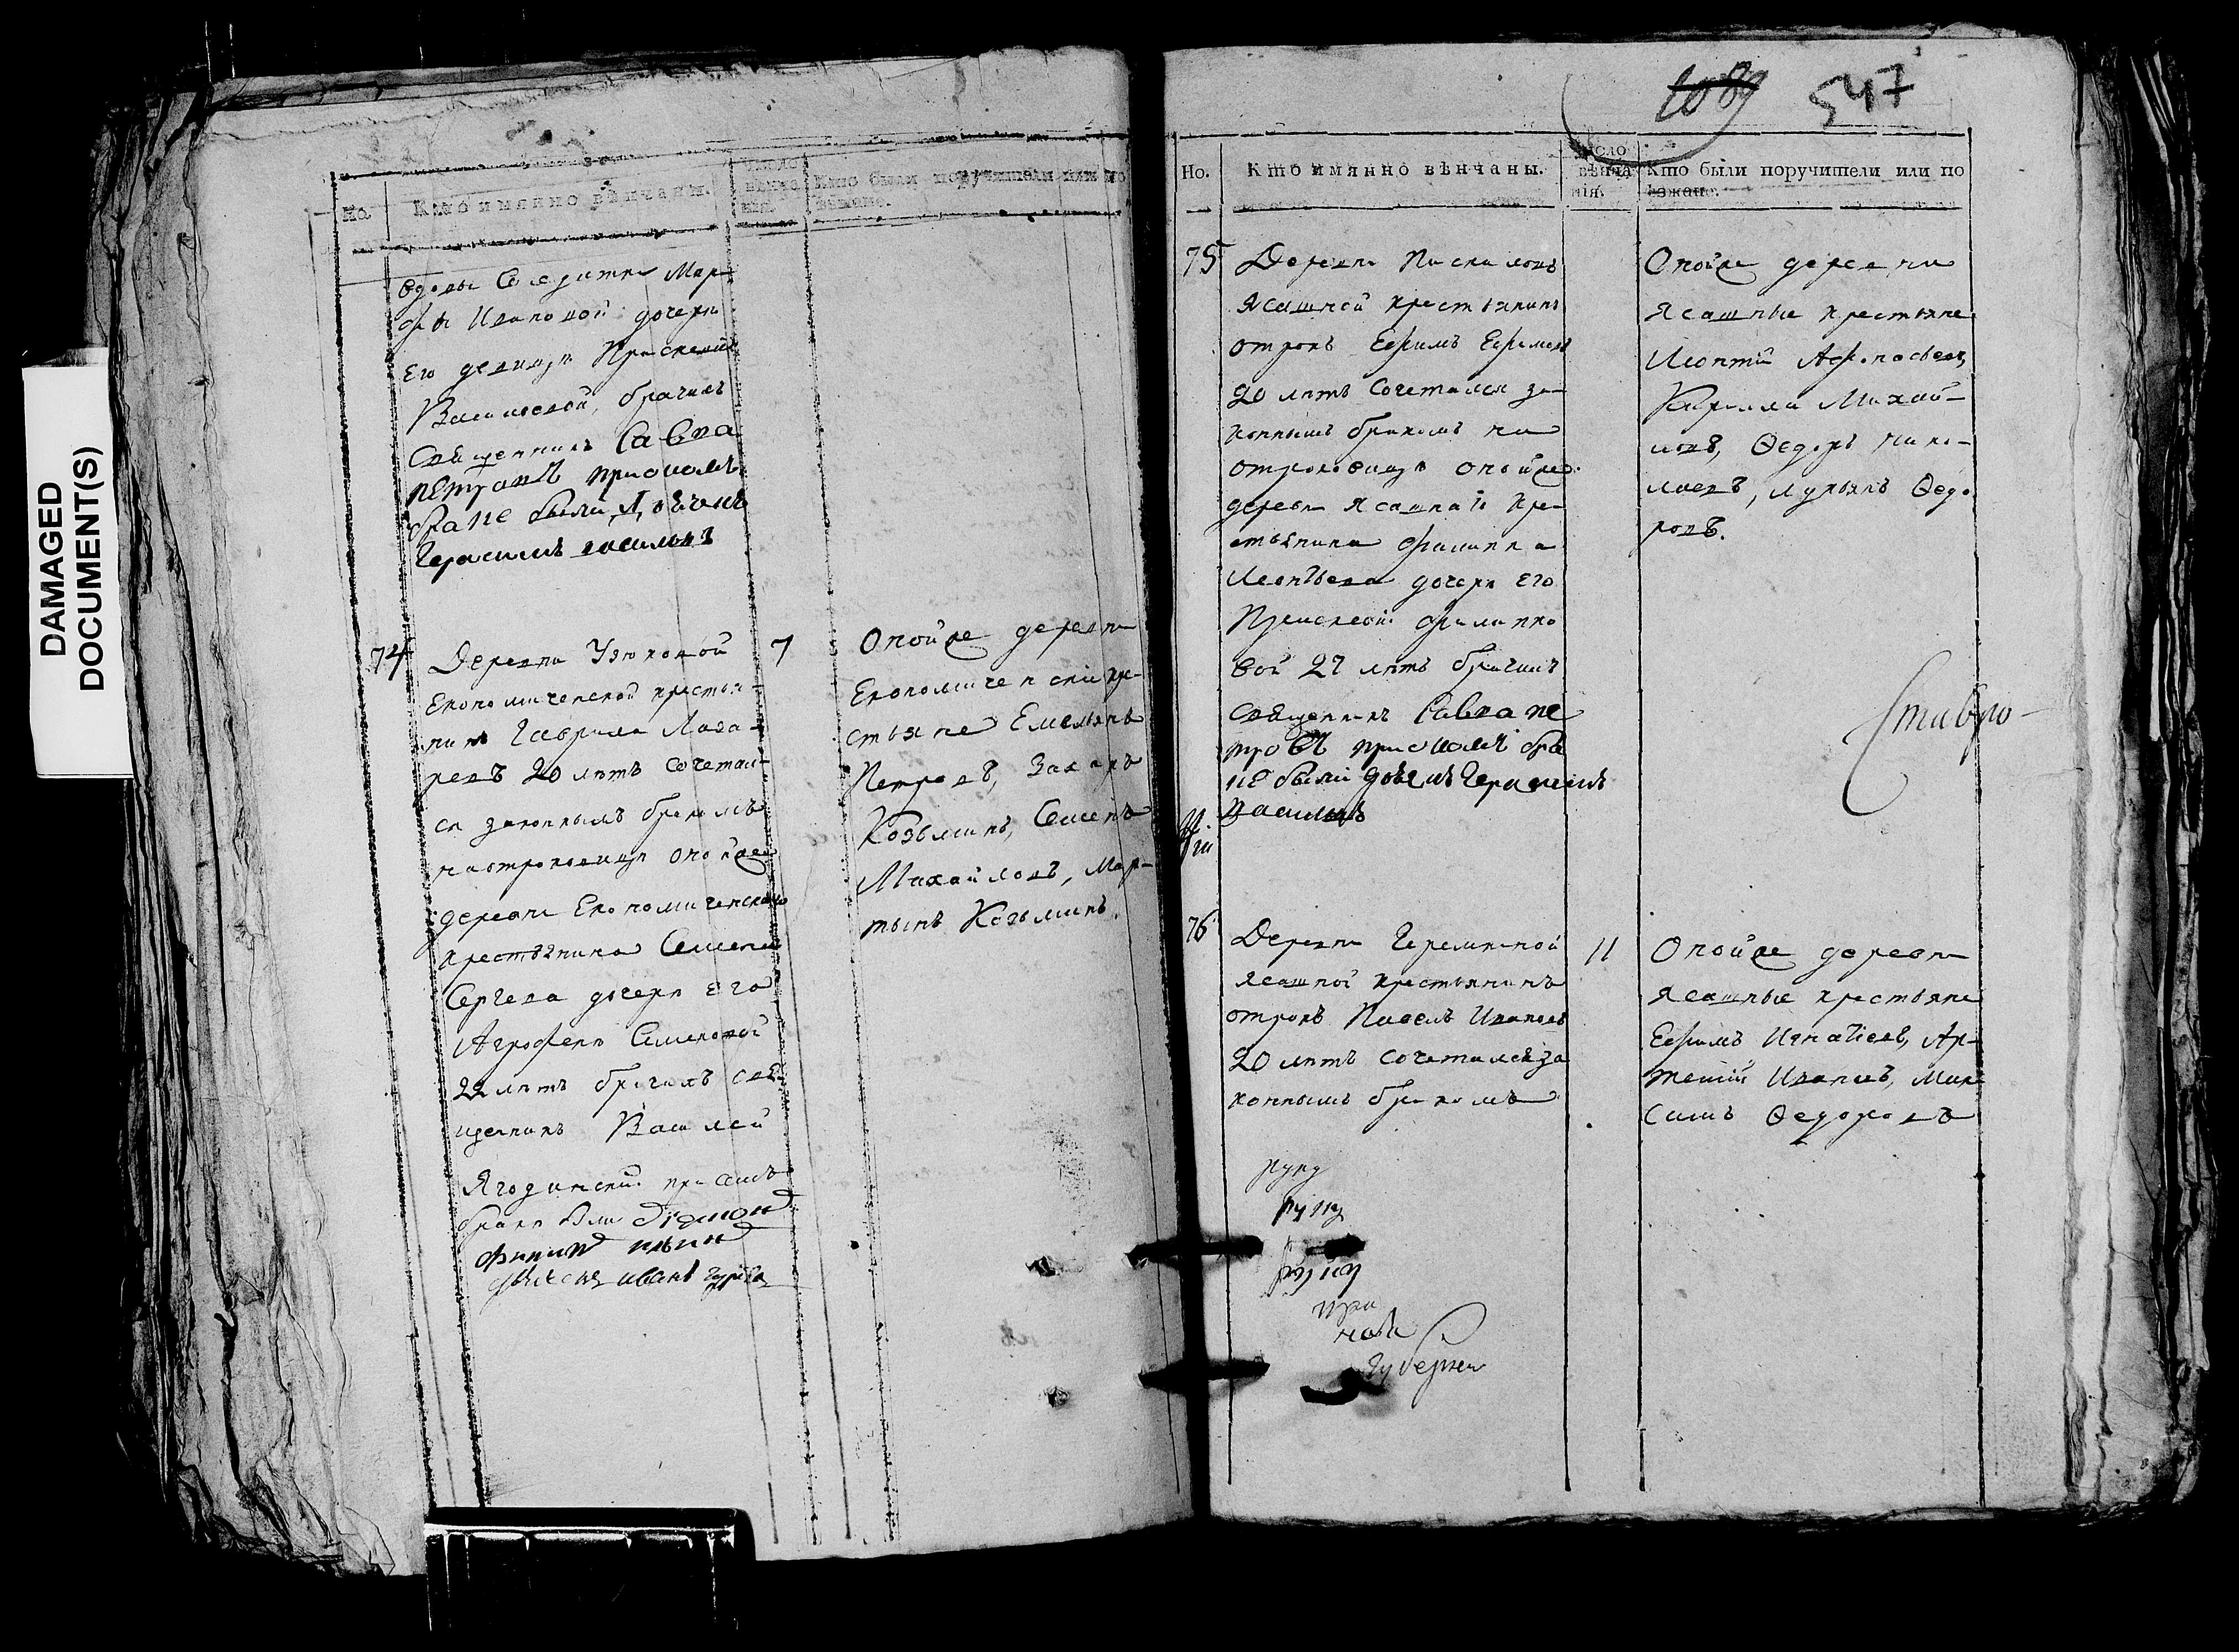 DAMAGED
DOCUMENT(S)
Но.
Кто имянно вѣнчаны.
число
вѣнча
нія.
Кто были поручители или по
ѣзжане.
вдовы Солдатки Мар-
фы Ивановой дочери
Его девицу Прасковiи
Васильевой, брачилъ
Священникъ Савва
петровъ присемъ
браке были дьячокъ
Герасимъ васильевъ
74
Деревни Узюковой
Економической крестья-
нинъ Гаврила Лаза-
ревъ 20 лѣтъ сочетал-
ся законнымъ бракомъ
наотроковицу оной же
деревни Економическаго
крестьянина Семена
Сергева дочери Его
Агрофени Семеновой
22 лѣтъ брачилъ Свя-
щенникъ Василей
Ягодинский при семъ
браке были диакон
филип ильин
иванъ
7
Оной же деревни
Економическiи кре-
стьяне Емельянъ
Петровъ, Захаръ
Козьминъ, Семенъ
Михайловъ, Мар-
тынъ Козьминъ.
1089 547
Но.
Кто имянно вѣнчаны.
число
вѣнча
нія.
Кто были поручители или по
ѣзжане.
75
Деревни Пискаловъ
Ясашной крестьянинъ
отрокъ Ефимъ Ефремовъ
20 лѣтъ сочетался за-
коннымъ бракомъ на
отроковицу оной же
деревни Ясашнаго кре-
стьянина Филиппа
Леонтьева дочери Его
Прасковiи Филиппо
вой 27 лѣтъ брачилъ
священникъ Савва пе
тровъ присемъ бра
ке были дьячокъ Герасимъ
васильевъ
Оной же деревни
Ясашные крестьяне
Леонтiй Афонасьевъ,
Кирилла Михай-
ловъ, Ѳедоръ Нико-
лаевъ, Лукьянъ Ѳедо
ровъ.
Ставро-
76
Деревни Черемисской
Ясашной крестьянинъ
отрокъ Павелъ Ивановъ
20 лѣтъ сочетался за
коннымъ бракомъ
11
Оной же деревни
Ясашные крестьяне
Ефимъ Игнатiевъ, Ар-
темiй Ивановъ, Мак
симъ Ѳедоровъ
руку
руку
руку
при
губернии